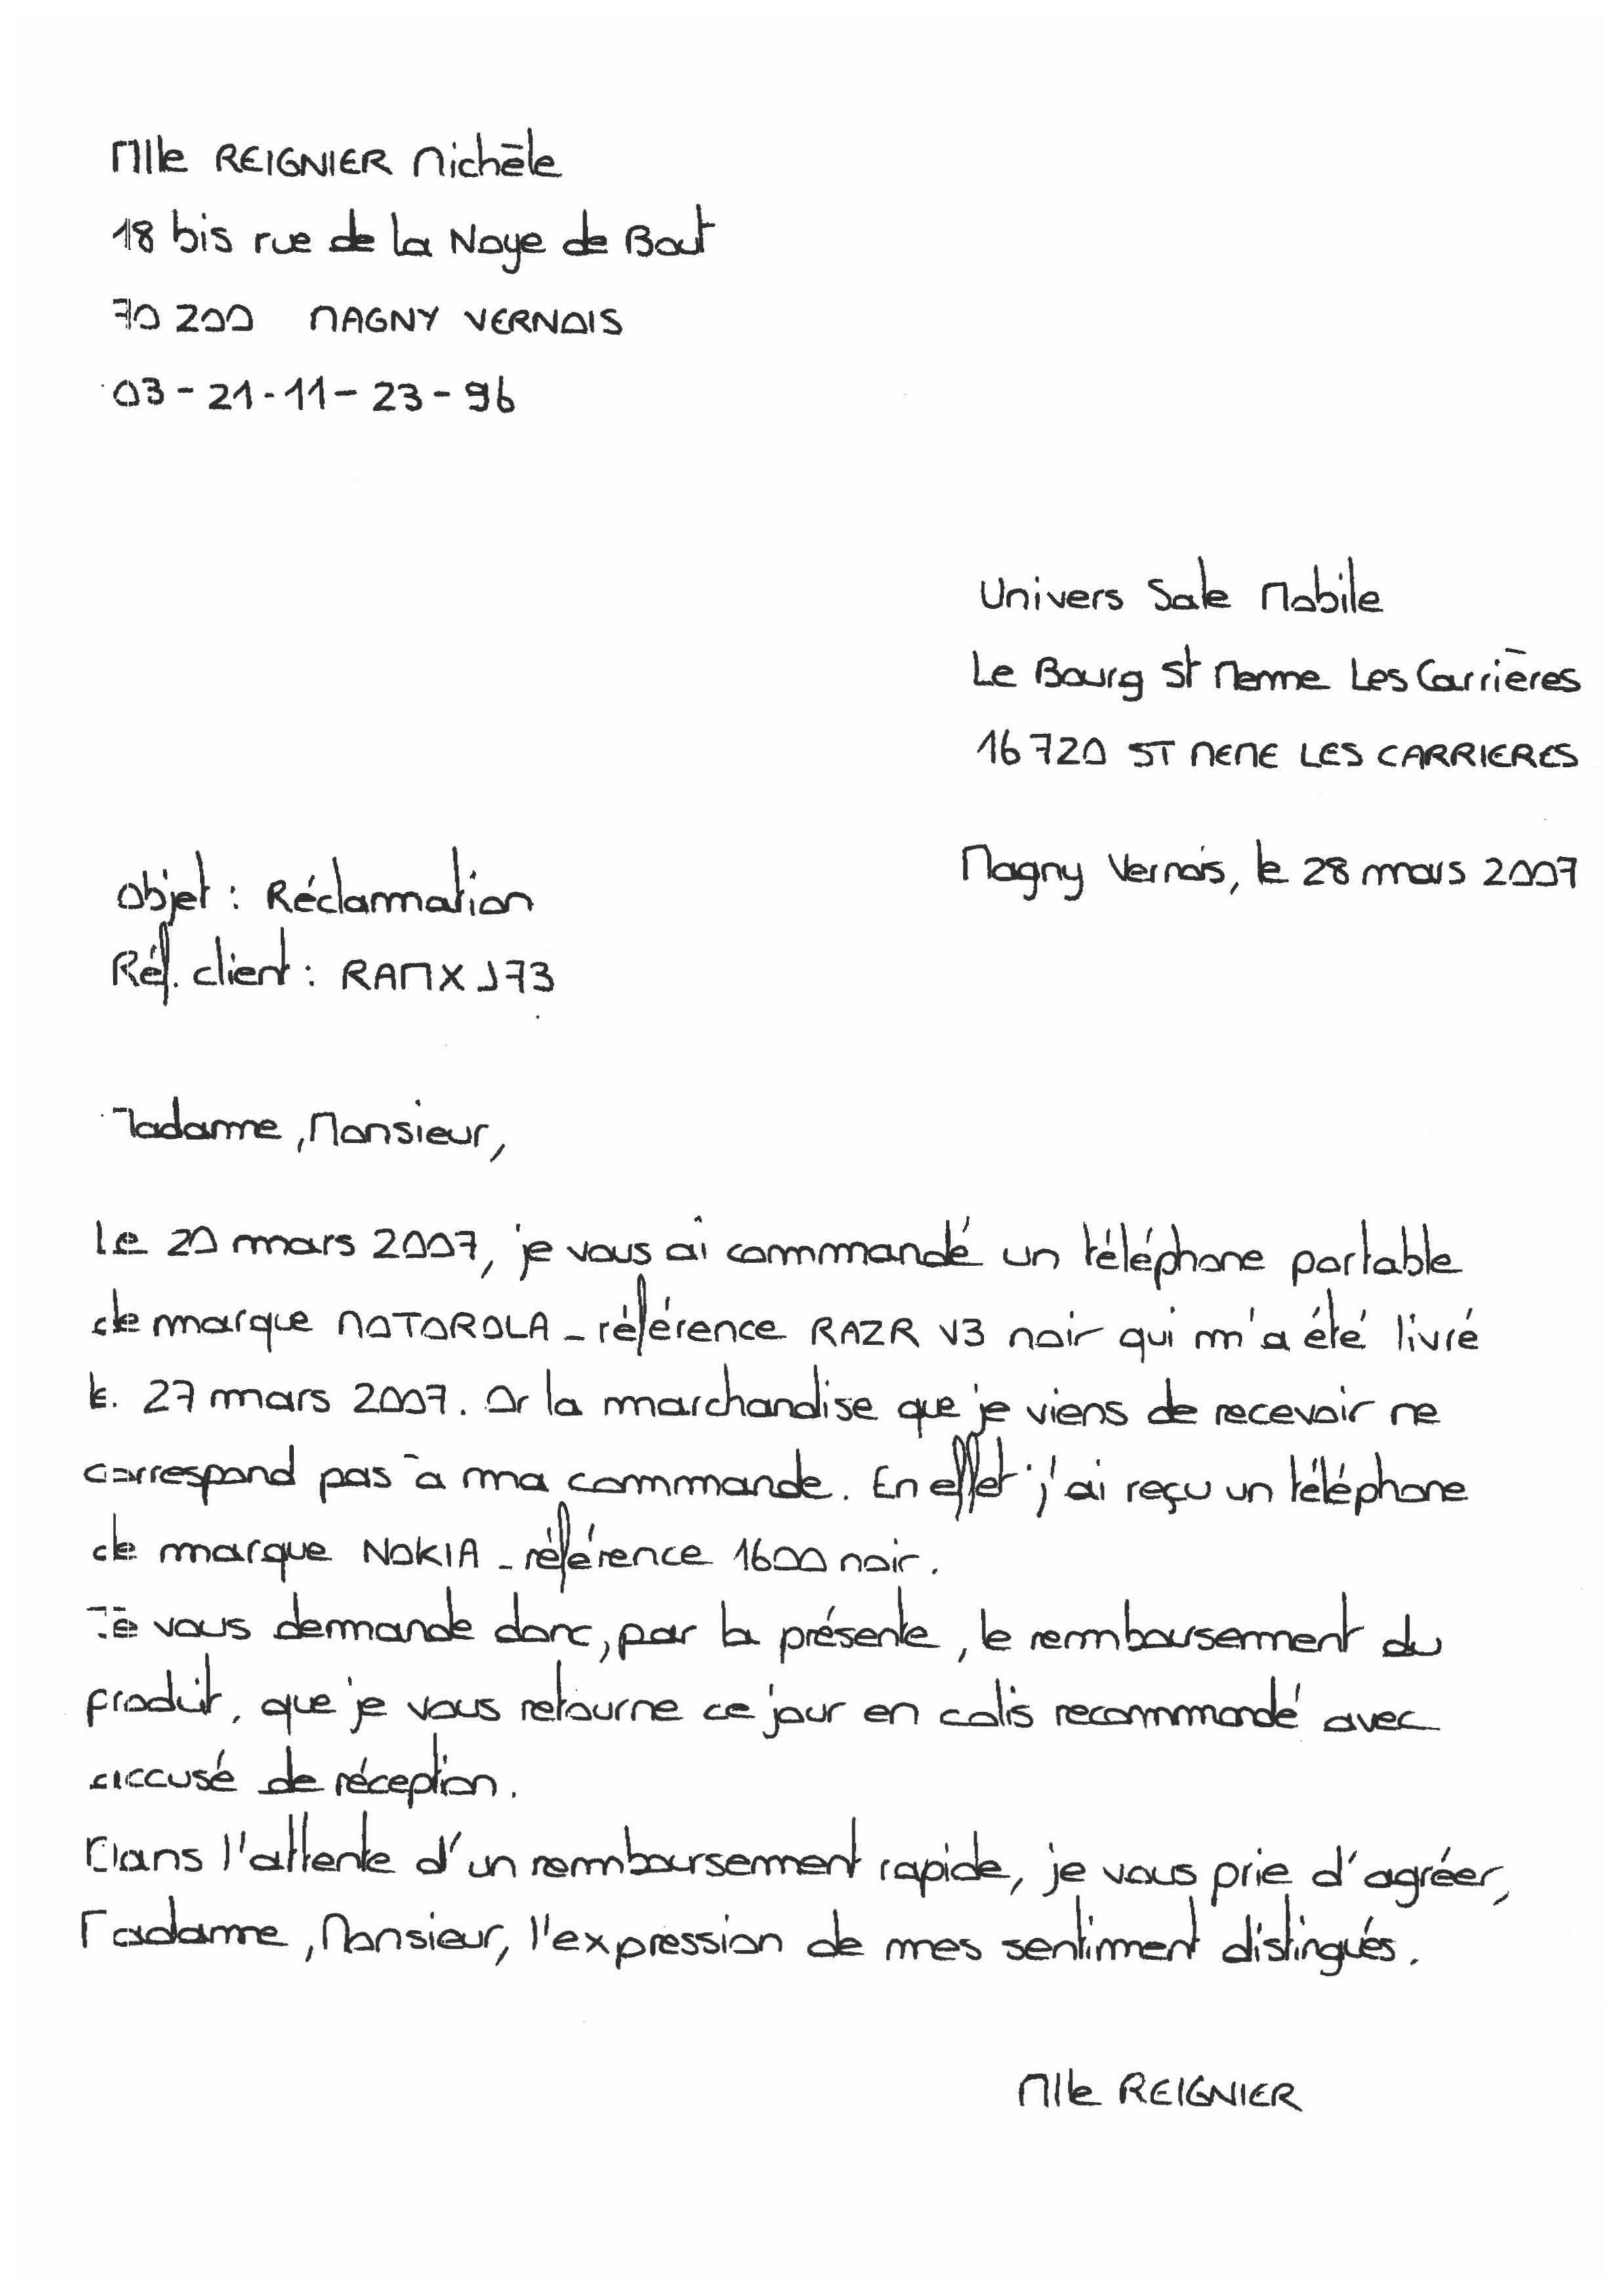 Mlle REIGNIER Michèle
18 bis rue de la Noye de Bout
70 200 MAGNY VERNOIS
03-21-11-23-96
Univers Sale Mobile
Le Bourg St Meme Les Carrières
16720 ST MEME LES CARRIERES
Magny Vernois, le 28 mars 2007
Objet : Réclamation
Réf. client : RAMX J73
Madame, Monsieur,
Le 20 mars 2007, je vous ai commandé un téléphone portable
de marque MOTOROLA - référence RAZR V3 noir qui m'a été livré
le 27 mars 2007. Or la marchandise que je viens de recevoir ne
correspond pas à ma commande. En effet j'ai reçu un téléphone
de marque NOKIA - référence 1600 noir.
Je vous demande donc, par la présente, le remboursement du
produit, que je vous retourne ce jour en colis recommandé avec
accusé de réception.
Dans l'attente d'un remboursement rapide, je vous prie d'agréer,
Madame, Monsieur, l'expression de mes sentiment distingués.
Mlle REIGNIER